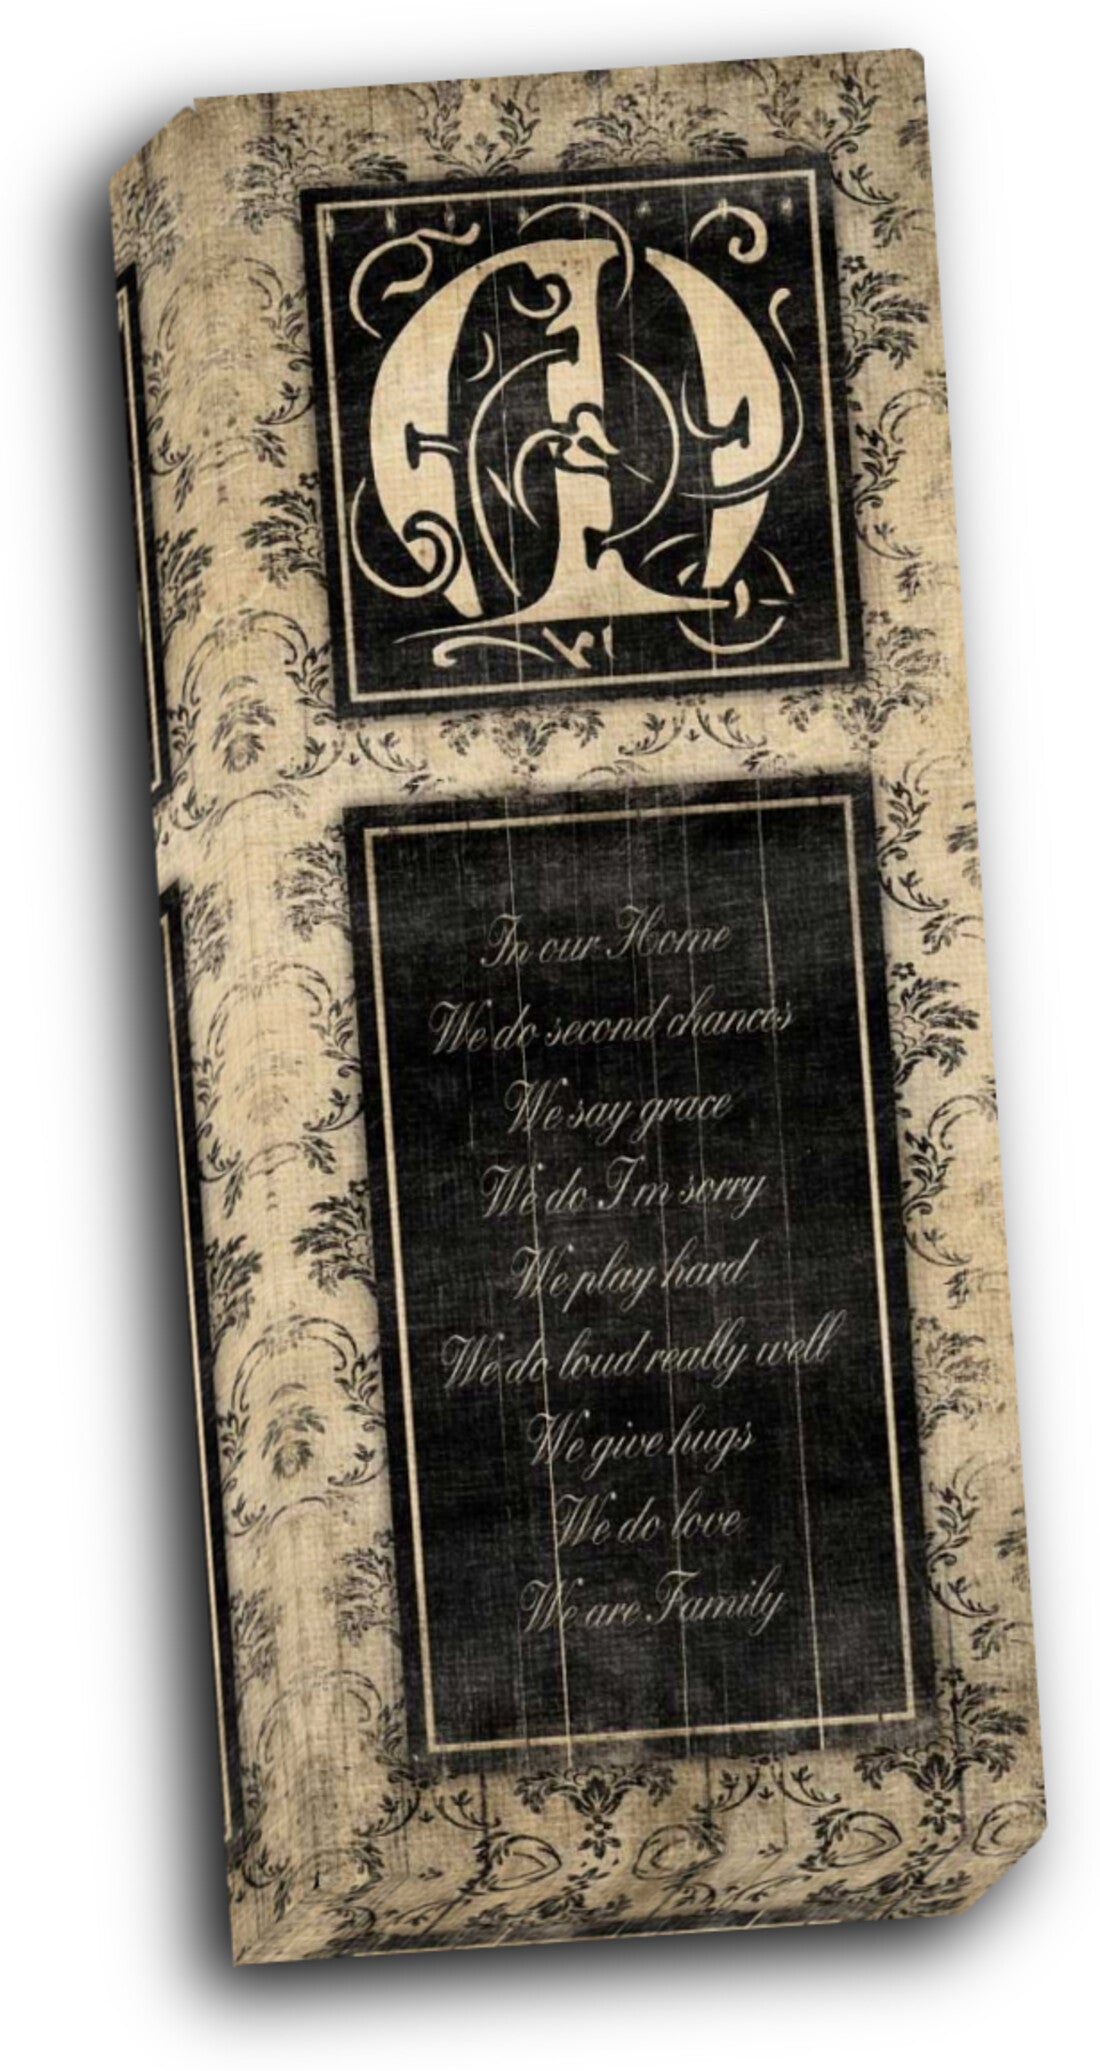 M
In our Home
We do second chances
We say grace
We do I'm sorry
We play hard
We do loud really well
We give hugs
We do love
We are Family